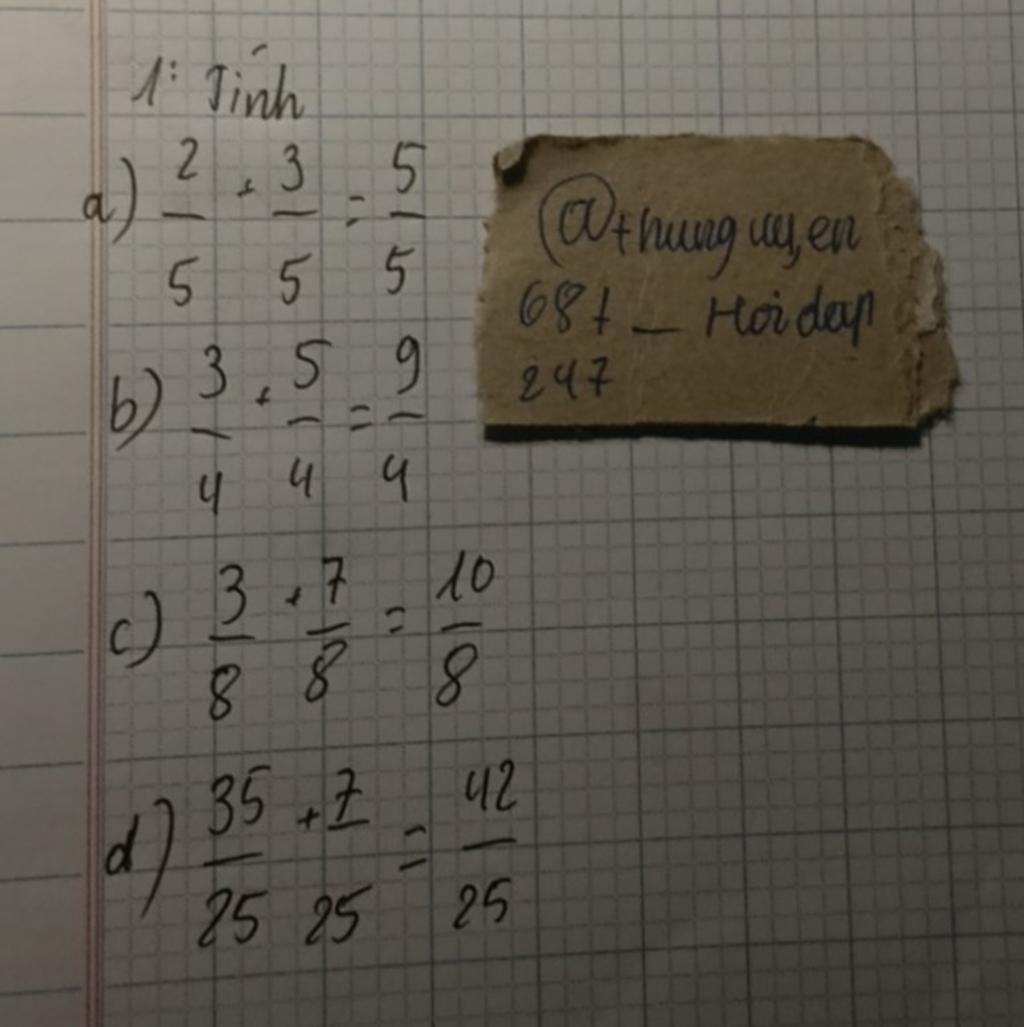 1: Tính
a) 2/5 + 3/5 = 5/5
b) 3/4 + 5/4 = 9/4
c) 3/8 + 7/8 = 10/8
d) 35/25 + 7/25 = 42/25
@thunguyen
681 _ Hoidap
247